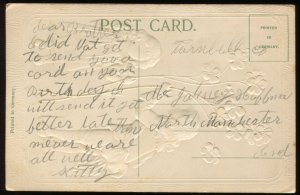 POST CARD.
PRINTED IN GERMANY.
Printed in Germany.
dear Brother
I did not get
to send you a
card on your
birth day
will send it yet
better late than
never we are
all well
Kitty
North Manchester
Ind